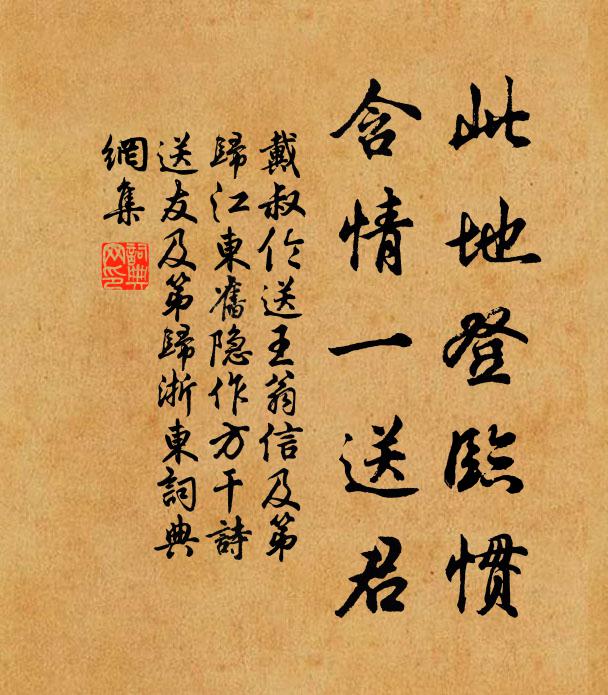 此地登臨慣
含情一送君
戴叔伦送王翁信及第
歸江東舊隐作方干詩
送友及第歸浙東詞典
網集
詞典網印